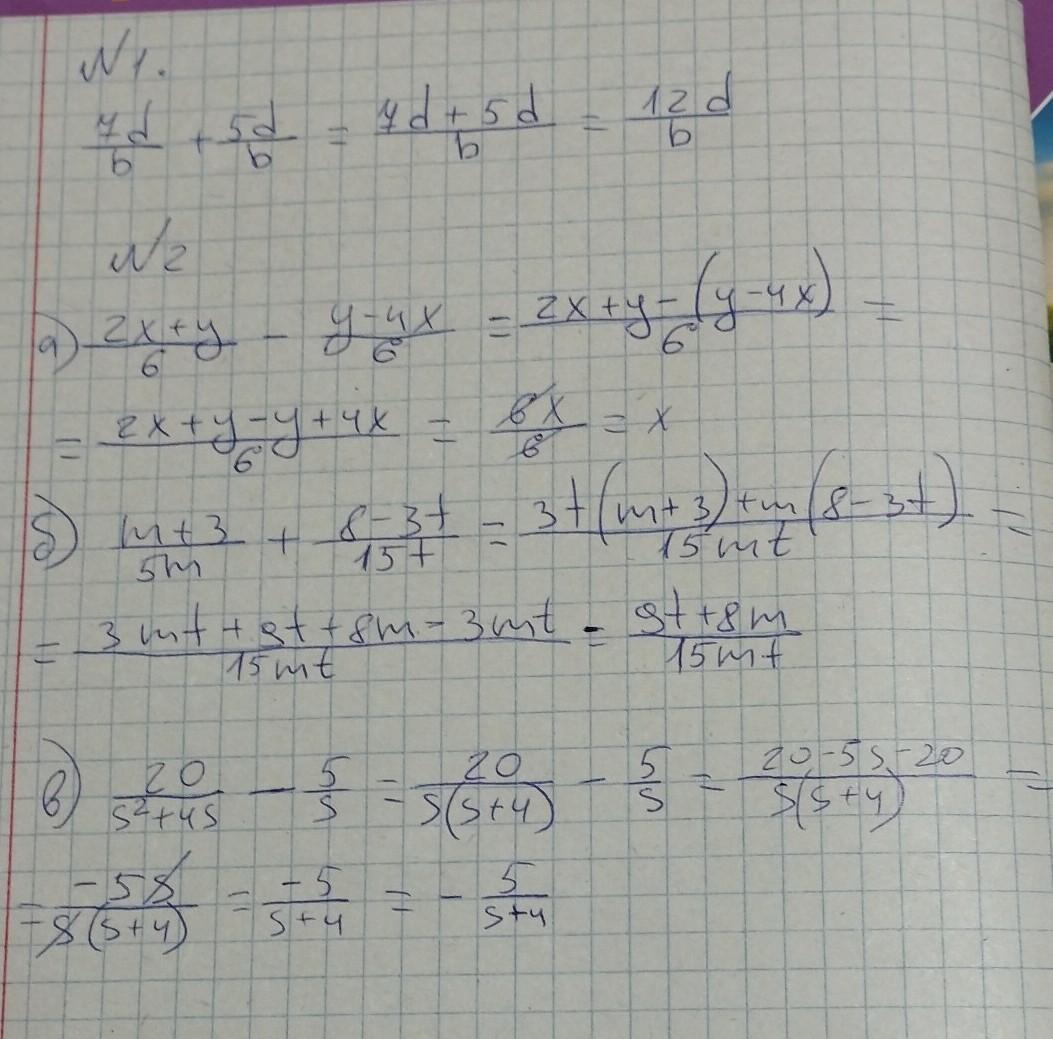 №1.
7d/b + 5d/b = (7d+5d)/b = 12d/b
№2
а) (2x+y)/6 - (y-4x)/6 = (2x+y-(y-4x))/6 =
= (2x+y-y+4x)/6 = 6x/6 = x
б) (m+3)/5m + (8-3t)/15t = (3t(m+3)+m(8-3t))/15mt =
= (3mt+9t+8m-3mt)/15mt = (9t+8m)/15mt
в) 20/(s²+4s) - 5/s = 20/(s(s+4)) - 5/s = (20-5s-20)/(s(s+4)) =
= -5s/(s(s+4)) = -5/(s+4) = - 5/(s+4)